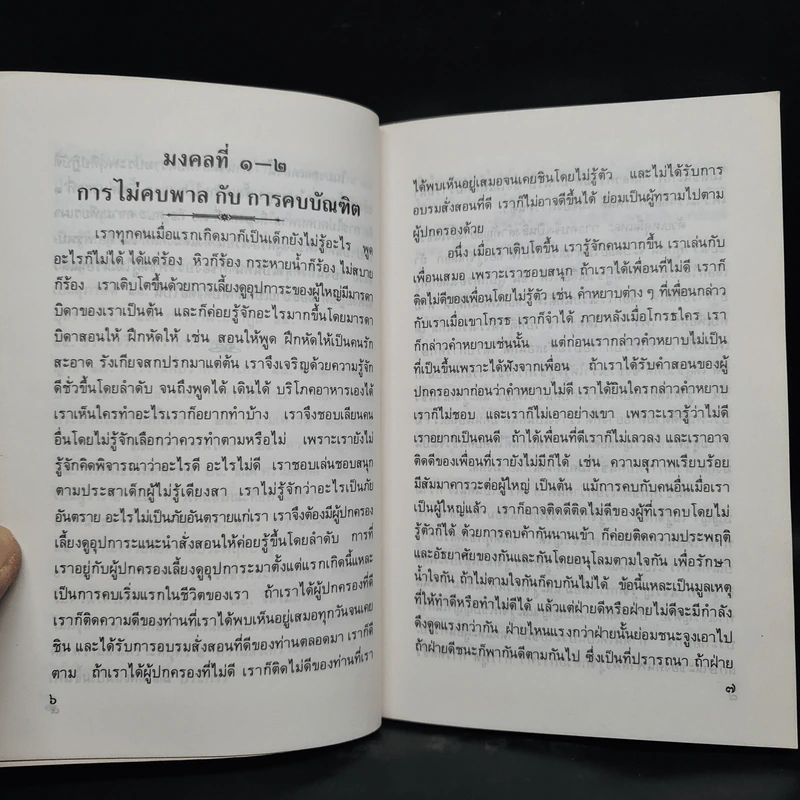 มงคลที่ ๑—๒
การไม่คบพาล กับ การคบบัณฑิต
เราทุกคนเมื่อแรกเกิดมาก็เป็นเด็กยังไม่รู้อะไร พูด
อะไรก็ไม่ได้ ได้แต่ร้อง หิวก็ร้อง กระหายน้ำก็ร้อง ไม่สบาย
ก็ร้อง เราเติบโตขึ้นด้วยการเลี้ยงดูอุปการะของผู้ใหญ่มีมารดา
บิดาของเราเป็นต้น และก็ค่อยรู้จักอะไรมากขึ้นโดยมารดา
บิดาสอนให้ ฝึกหัดให้ เช่น สอนให้พูด ฝึกหัดให้เป็นคนรัก
สะอาด รังเกียจสกปรกมาแต่ต้น เราจึงเจริญด้วยความรู้จัก
ดีชั่วขึ้นโดยลำดับ จนถึงพูดได้ เดินได้ บริโภคอาหารเองได้
เราเห็นใครทำอะไรเราก็อยากทำบ้าง เราจึงชอบเลียนคน
อื่นโดยไม่รู้จักเลือกว่าควรทำตามหรือไม่ เพราะเรายังไม่
รู้จักคิดพิจารณาว่าอะไรดี อะไรไม่ดี เราชอบเล่นชอบสนุก
ตามประสาเด็กผู้ไม่รู้เดียงสา เราไม่รู้จักว่าอะไรเป็นภัย
อันตราย อะไรไม่เป็นภัยอันตรายแก่เรา เราจึงต้องมีผู้ปกครอง
เลี้ยงดูอุปการะแนะนำสั่งสอนให้ค่อยรู้ขึ้นโดยลำดับ การที่
เราอยู่กับผู้ปกครองเลี้ยงดูอุปการะมาตั้งแต่แรกเกิดนี้แหละ
เป็นการคบเริ่มแรกในชีวิตของเรา ถ้าเราได้ผู้ปกครองที่ดี
เราก็ติดความดีของท่านที่เราได้พบเห็นอยู่เสมอทุกวันจนเคย
ชิน และได้รับการอบรมสั่งสอนที่ดีของท่านตลอดมา เราก็ดี
ตาม ถ้าเราได้ผู้ปกครองที่ไม่ดี เราก็ติดไม่ดีของท่านที่เรา
๖
ได้พบเห็นอยู่เสมอจนเคยชินโดยไม่รู้ตัว และไม่ได้รับการ
อบรมสั่งสอนที่ดี เราก็ไม่อาจดีขึ้นได้ ย่อมเป็นผู้ทรามไปตาม
ผู้ปกครองด้วย
อนึ่ง เมื่อเราเติบโตขึ้น เรารู้จักคนมากขึ้น เราเล่นกับ
เพื่อนเสมอ เพราะเราชอบสนุก ถ้าเราได้เพื่อนที่ไม่ดี เราก็
ติดไม่ดีของเพื่อนโดยไม่รู้ตัว เช่น คำหยาบต่าง ๆ ที่เพื่อนกล่าว
กับเราเมื่อเขาโกรธ เราก็จำได้ ภายหลังเมื่อโกรธใคร เรา
ก็กล่าวคำหยาบเช่นนั้น แต่ก่อนเรากล่าวคำหยาบไม่เป็น
ที่เป็นขึ้นเพราะได้ฟังจากเพื่อน ถ้าเราได้รับคำสอนของผู้
ปกครองมาก่อนว่าคำหยาบไม่ดี เราได้ยินใครกล่าวคำหยาบ
เราก็ไม่ชอบ และเราก็ไม่เอาอย่างเขา เพราะเรารู้ว่าไม่ดี
เราอยากเป็นคนดี ถ้าได้เพื่อนที่ดีเราก็ไม่เลวลง และเราอาจ
ติดดีของเพื่อนที่เรายังไม่มีก็ได้ เช่น ความสุภาพเรียบร้อย
มีสัมมาคารวะต่อผู้ใหญ่ เป็นต้น แม้การคบกับคนอื่นเมื่อเรา
เป็นผู้ใหญ่แล้ว เราก็อาจติดดีติดไม่ดีของผู้ที่เราคบโดยไม่
รู้ตัวก็ได้ ด้วยการคบค้ากันนานเข้า ก็ค่อยติดความประพฤติ
และอัธยาศัยของกันและกันโดยอนุโลมตามใจกัน เพื่อรักษา
น้ำใจกัน ถ้าไม่ตามใจกันก็คบกันไม่ได้ ข้อนี้แหละเป็นมูลเหตุ
ที่ให้ทำดีหรือทำไม่ดีได้ แล้วแต่ฝ่ายดีหรือฝ่ายไม่ดีจะมีกำลัง
ดึงดูดแรงกว่ากัน ฝ่ายไหนแรงกว่าฝ่ายนั้นย่อมชนะจูงเอาไป
ถ้าฝ่ายดีชนะก็พากันดีตามกันไป ซึ่งเป็นที่ปรารถนา ถ้าฝ่าย
๗